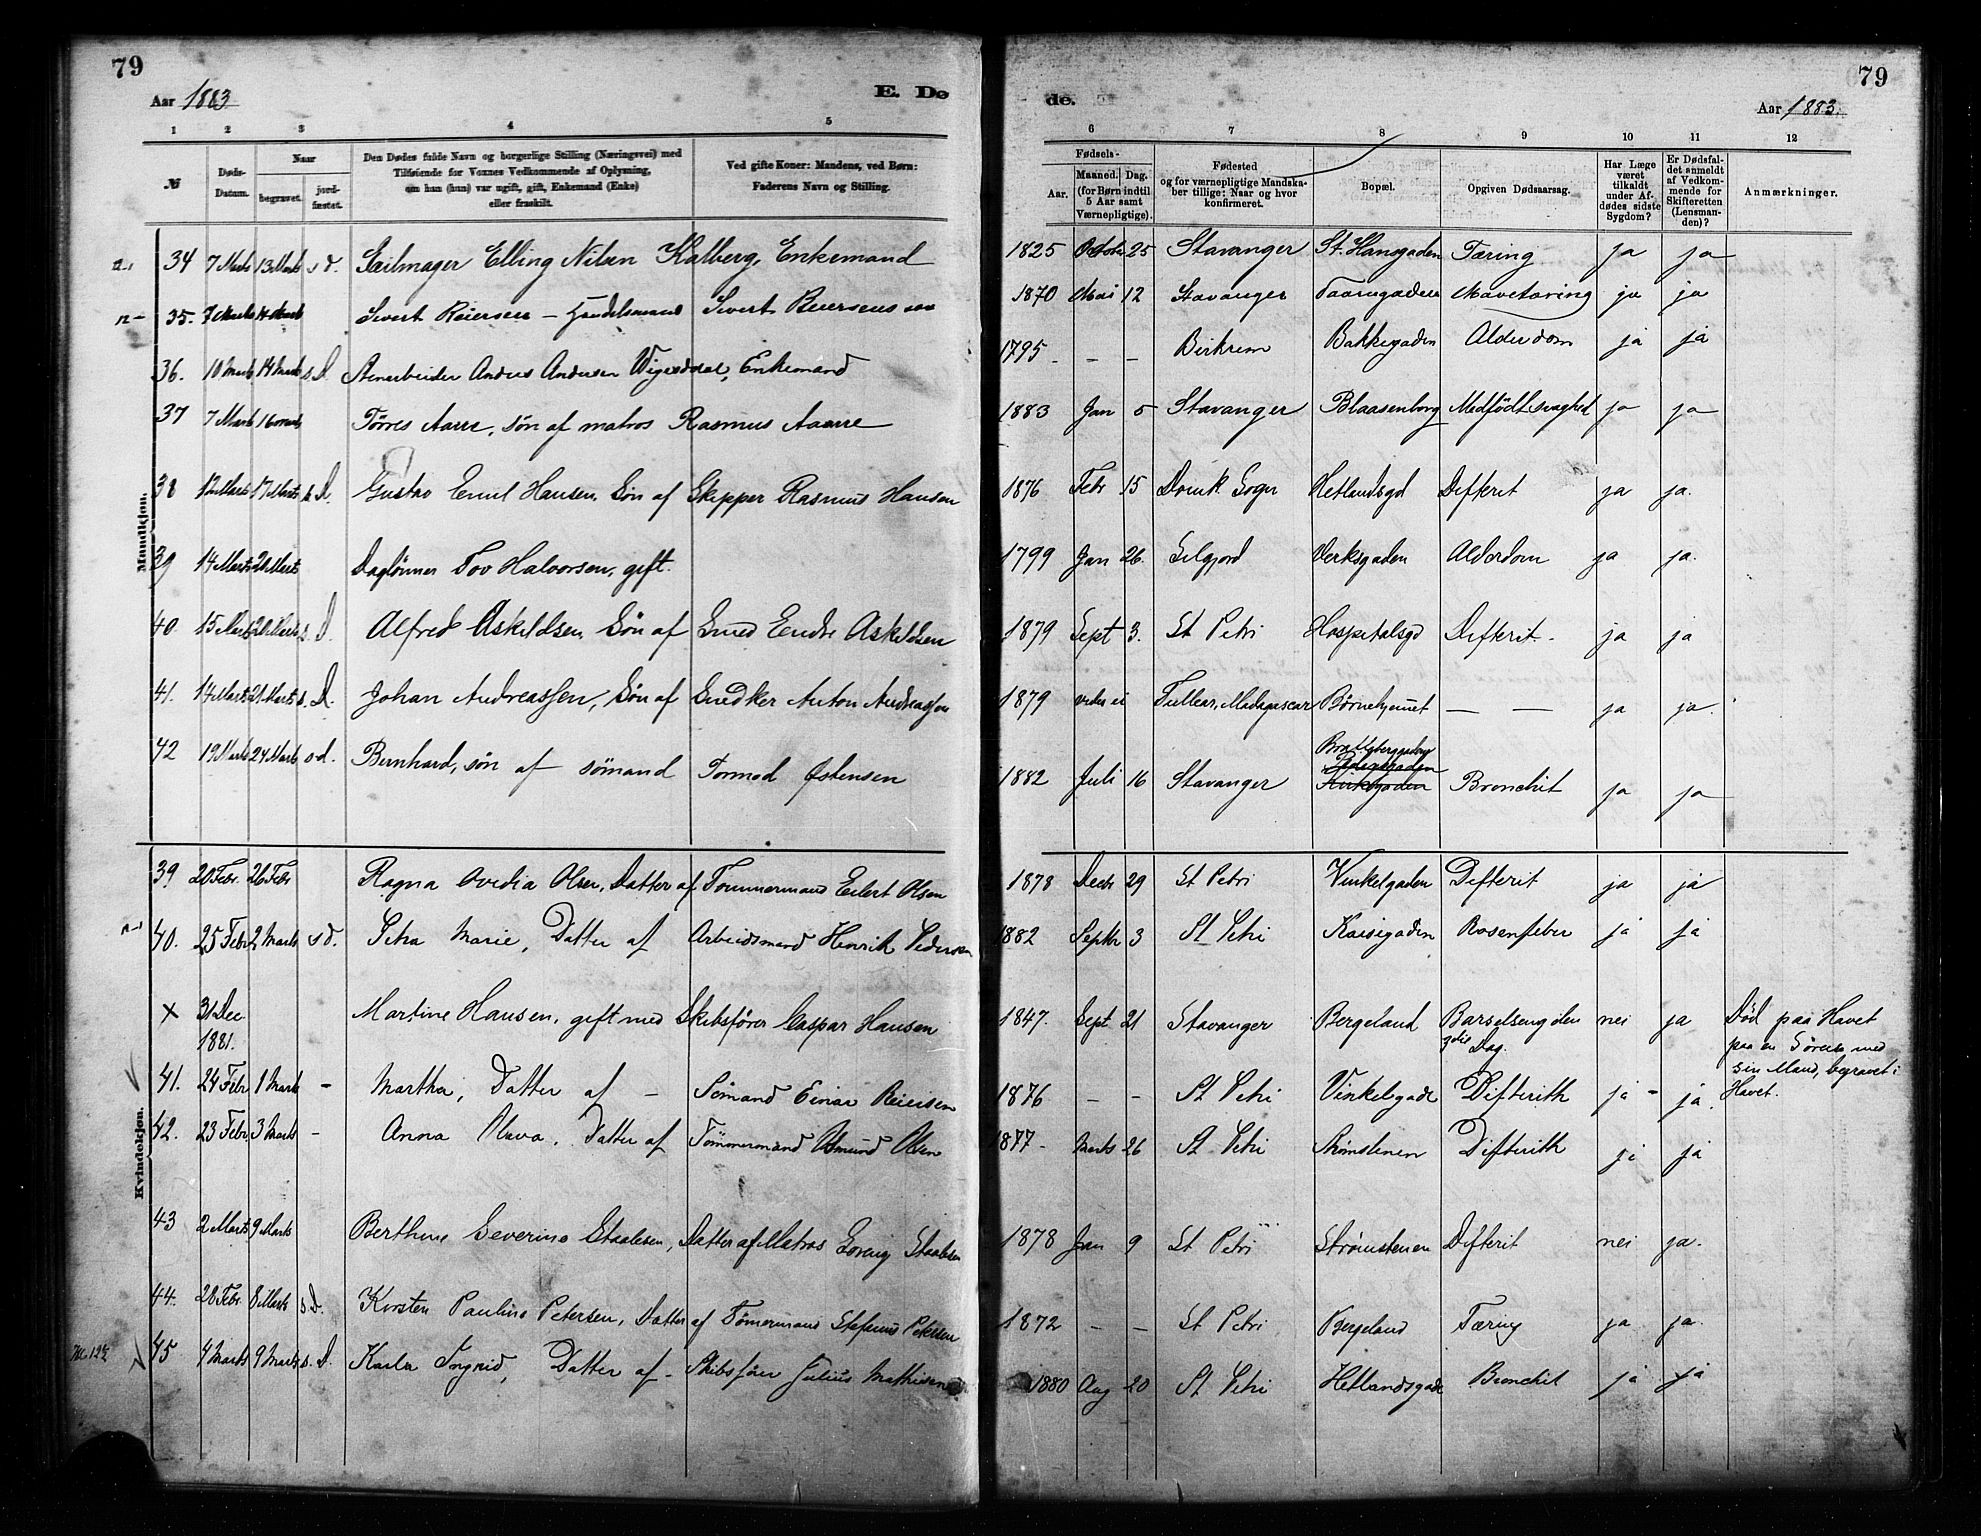 79
Aar 1883
E. Dø
1 2 3 4 5
№
Døds-Datum.
Naar
begravet.
jord-fæstet.
Den Dødes fulde Navn og borgerlige Stilling (Næringsvei) med
Tilføiende for Voxnes Vedkommende af Oplysning,
om han (hun) var ugift, gift, Enkemand (Enke)
eller fraskilt.
Ved gifte Koner: Mandens, ved Børn:
Faderens Navn og Stilling.
Mandkjøn.
34 7 Marts 13 Marts s d. Seilmager Elling Nilsen Kalberg, Enkemand
35. 7 Marts 14 Marts Sivert Reiersen – Handelsmand Sivert Reiersens
36. 10 Marts 14 Marts s D. Anders Andersen Enkemand
37 7 Marts 16 Marts Tørres Aarre, søn af matros Rasmus Aarre
38 12 Marts 17 Marts s D. Gustav Emil Hansen, Søn af Skipper Rasmus Hansen
39 14 Marts 20 Marts Daglønner Tov Halvorsen, gift.
40 15 Marts 20 Marts s. D. Alfred Askildsen, Søn af Smed Endre Askildsen
41. 14 Marts 21 Marts s. D. Johan Andreassen, Søn af Snedker Anton Andreassen
42 19 Marts 24 Marts s d. Bernhard, søn af sömand Tormod Østensen
Kvindekjøn.
39 20 Febr. 26 Febr Ragna Ovidia Olsen, Datter af Tømmermand Eilert Olsen
40. 25 Febr 2 Marts s d. Petra Marie, Datter af Arbeidsmand Henrik Pedersen
x 31 Dec 1881. Martine Hansen, gift med Skibsfører Caspar Hansen
41. 24 Febr 1 Marts – Martha, Datter af – Sømand Einar Reiersen
42. 23 Febr 3 Marts – Anna Olava, Datter af Tømmermand Asmund Olsen
43 2 Marts 9 Marts Berthine Severine Staalesen, Datter af Matros Staalesen
44. 28 Febr. 8 Marts s. D. Kirsten Pauline Petersen, Datter af Tømermand Petersen
45 4 Marts 9 Marts s. D. Karla Ingrid, Datter af – Skibsfører Julius Mathisen
79
de.
Aar 1883.
6 7 8 9 10 11 12
Fødsels-
Aar.
Maaned. Dag.
(for Børn indtil
5 Aar samt
Værnepligtige).
Fødested
og for værnepligtige Mandska-
ber tillige: Naar og hvor
konfirmeret.
Bopæl.
Opgiven Dødsaarsag.
Har Læge
været
tilkaldt
under Af-
dødes sidste
Sygdom?
Er Dødsfal-
det anmeldt
af Vedkom-
mende for
Skifteretten
(Lensman-
den)?
Anmærkninger.
1825 Octobr 25 Stavanger St. Hansgaden Tæring ja ja
1870 Mai 12 Stavanger Taarngaden Mavetæring ja ja
1795 – – – Birkrem Bakkegaden Alderdom ja ja
1883 Jan 5 Stavanger Blaasenborg Medfödt svaghed ja ja
1876 Febr 15 Domk. Sogn Hetlandsgd Difterit ja ja.
1799 Jan 26. Silgjord Verksgaden Alderdom ja ja.
1879 Sept 3. St Petri Hospitalsgd Difterit. ja ja
1879 vides ei Tullear, Madagascar Børnehjemet – – ja ja.
1882 Juli 16 Stavanger Bronchit ja ja
1878 Decbr 29 St Petri Vinkelgaden Difterit ja ja
1882 Septbr 3 St Petri Kaisegaden Rosenfeber ja ja
1847. Sept 21 Stavanger Bergeland Barselseng den Dag. nei ja Død paa Havet
paa en Søreise med
sin Mand, begravet i
Havet.
1876 – – St Petri Vinkelgade Difterith ja – ja.
1877 – Marts 26 St Petri Strømstenen Difterith ja ja
1878 Jan 9 St Petri Strömstenen Difterit nei ja.
1872 – – St Petri Bergeland Tæring ja ja.
1880 Aug 20 St Petri Hetlandsgade Bronchit ja ja